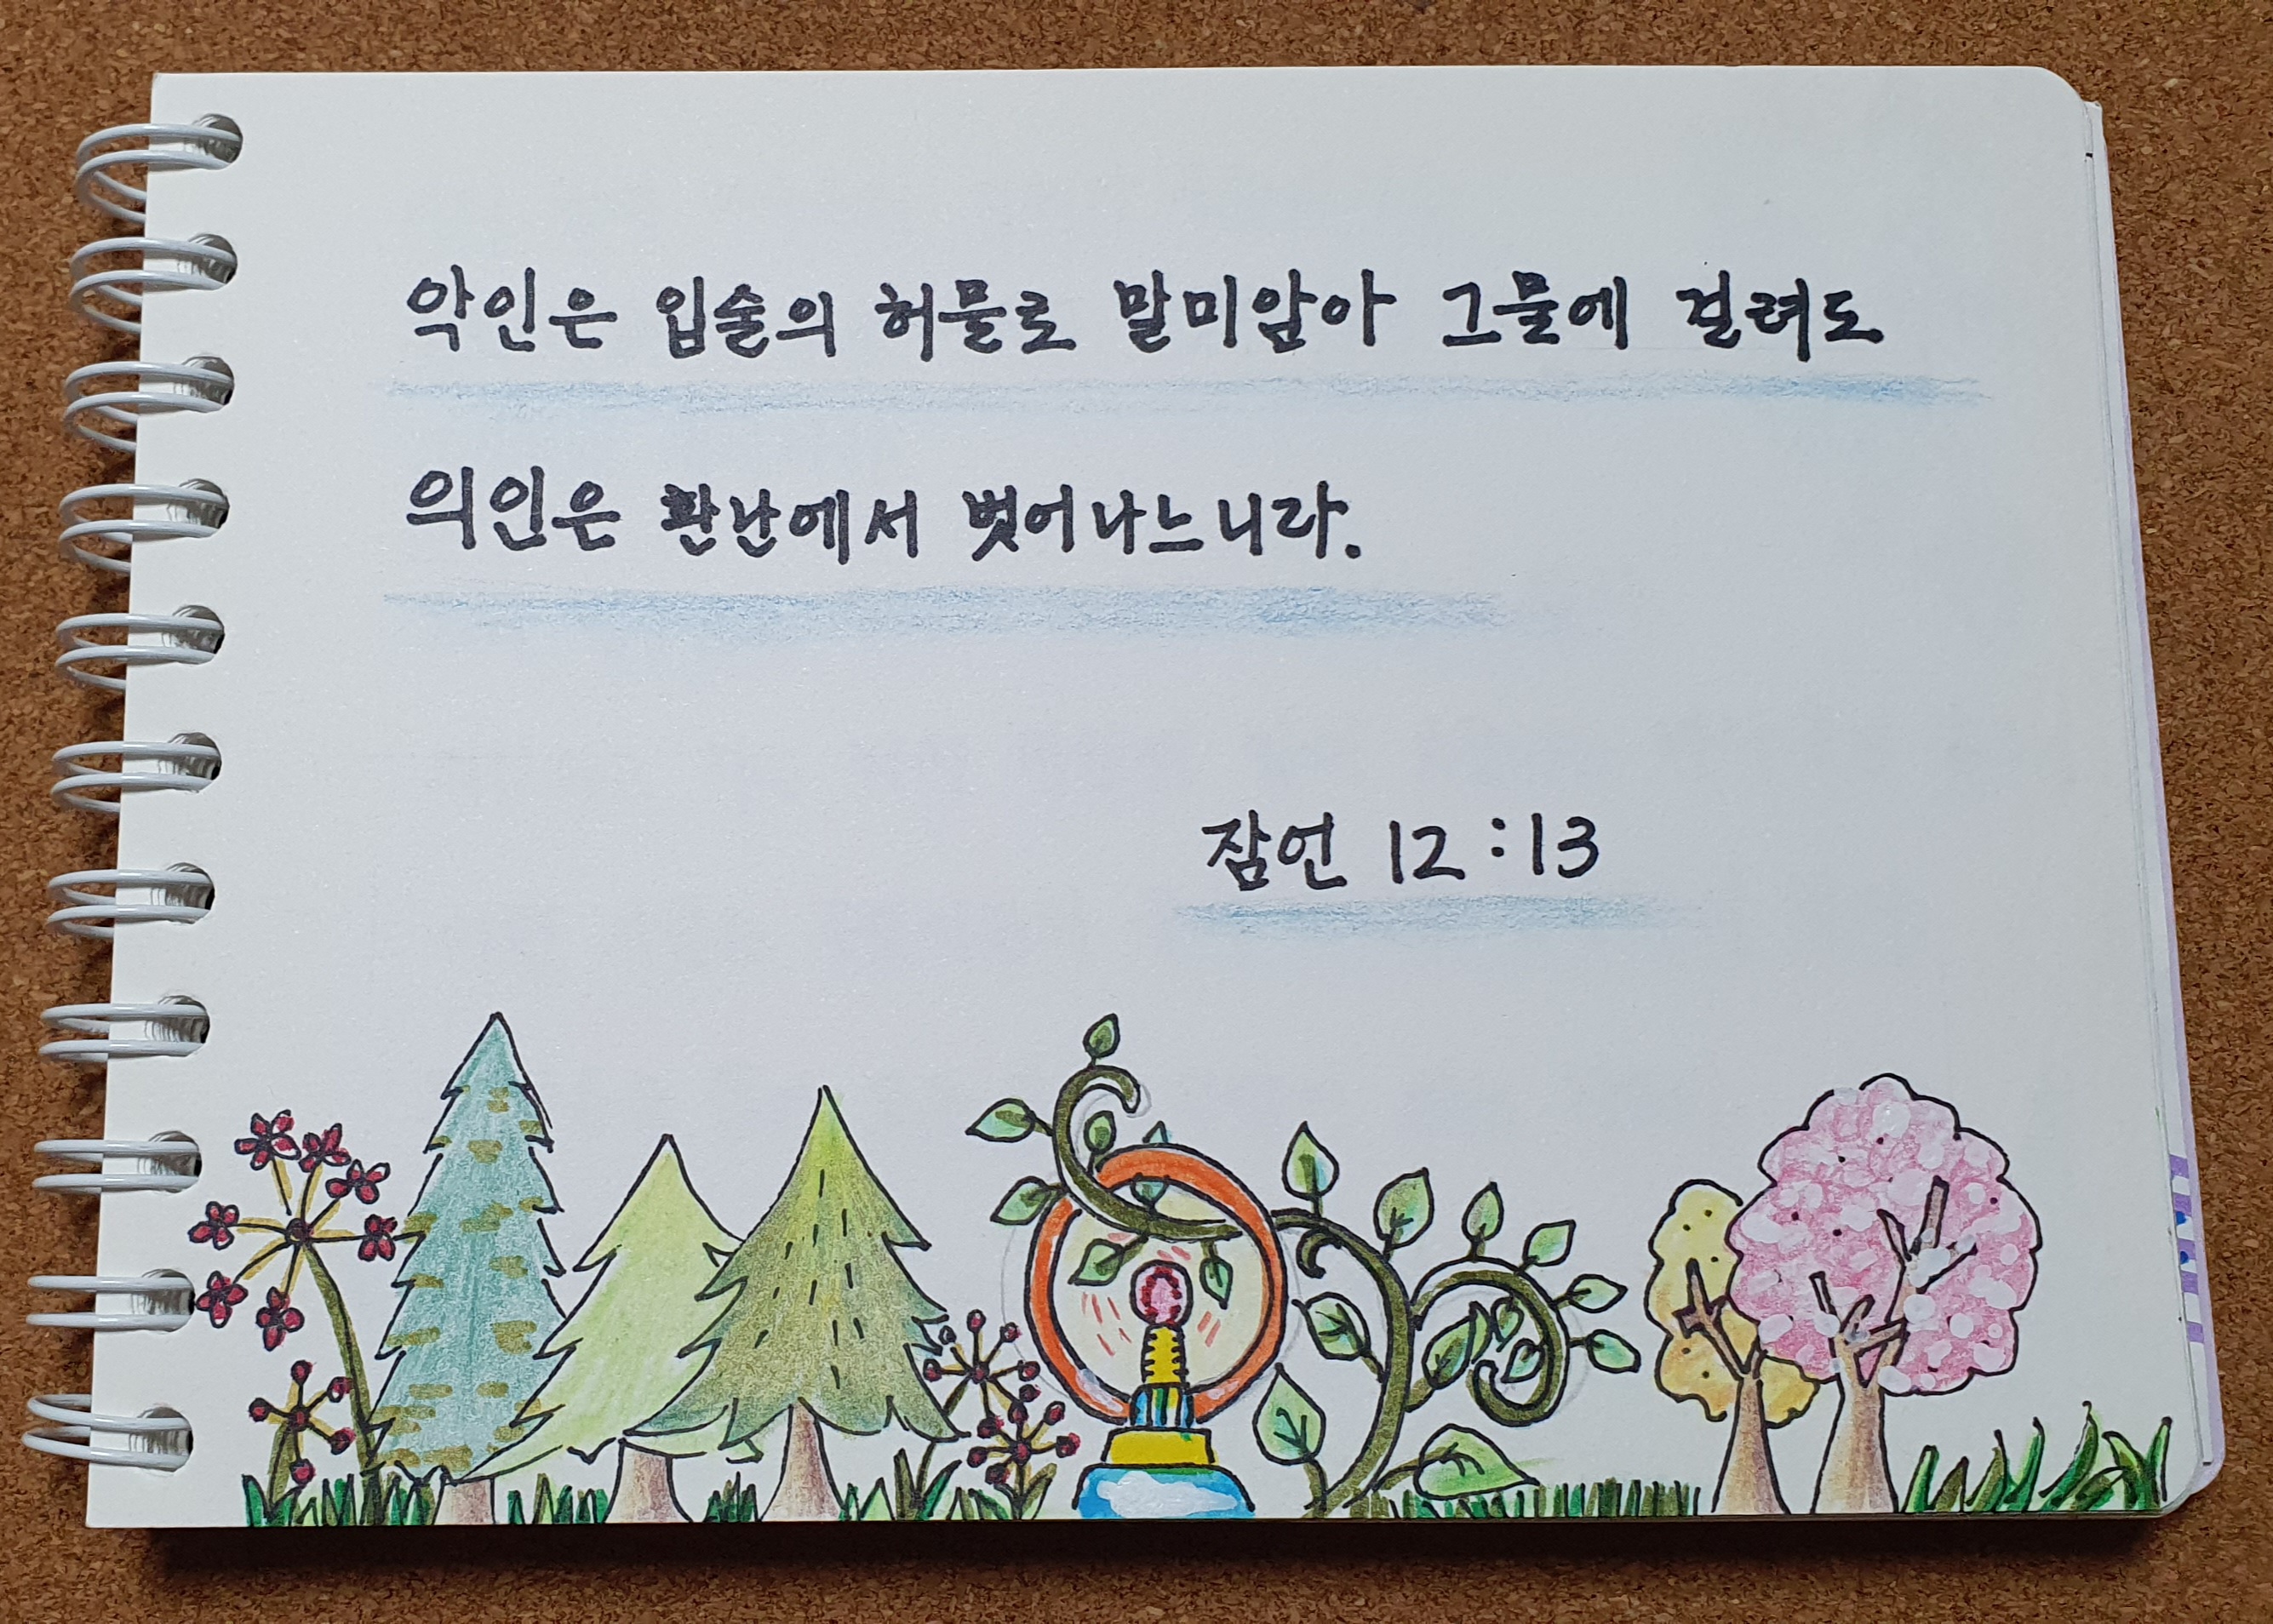 악인은 입술의 허물로 말미암아 그물에 걸려도
의인은 환난에서 벗어나느니라.
잠언 12:13